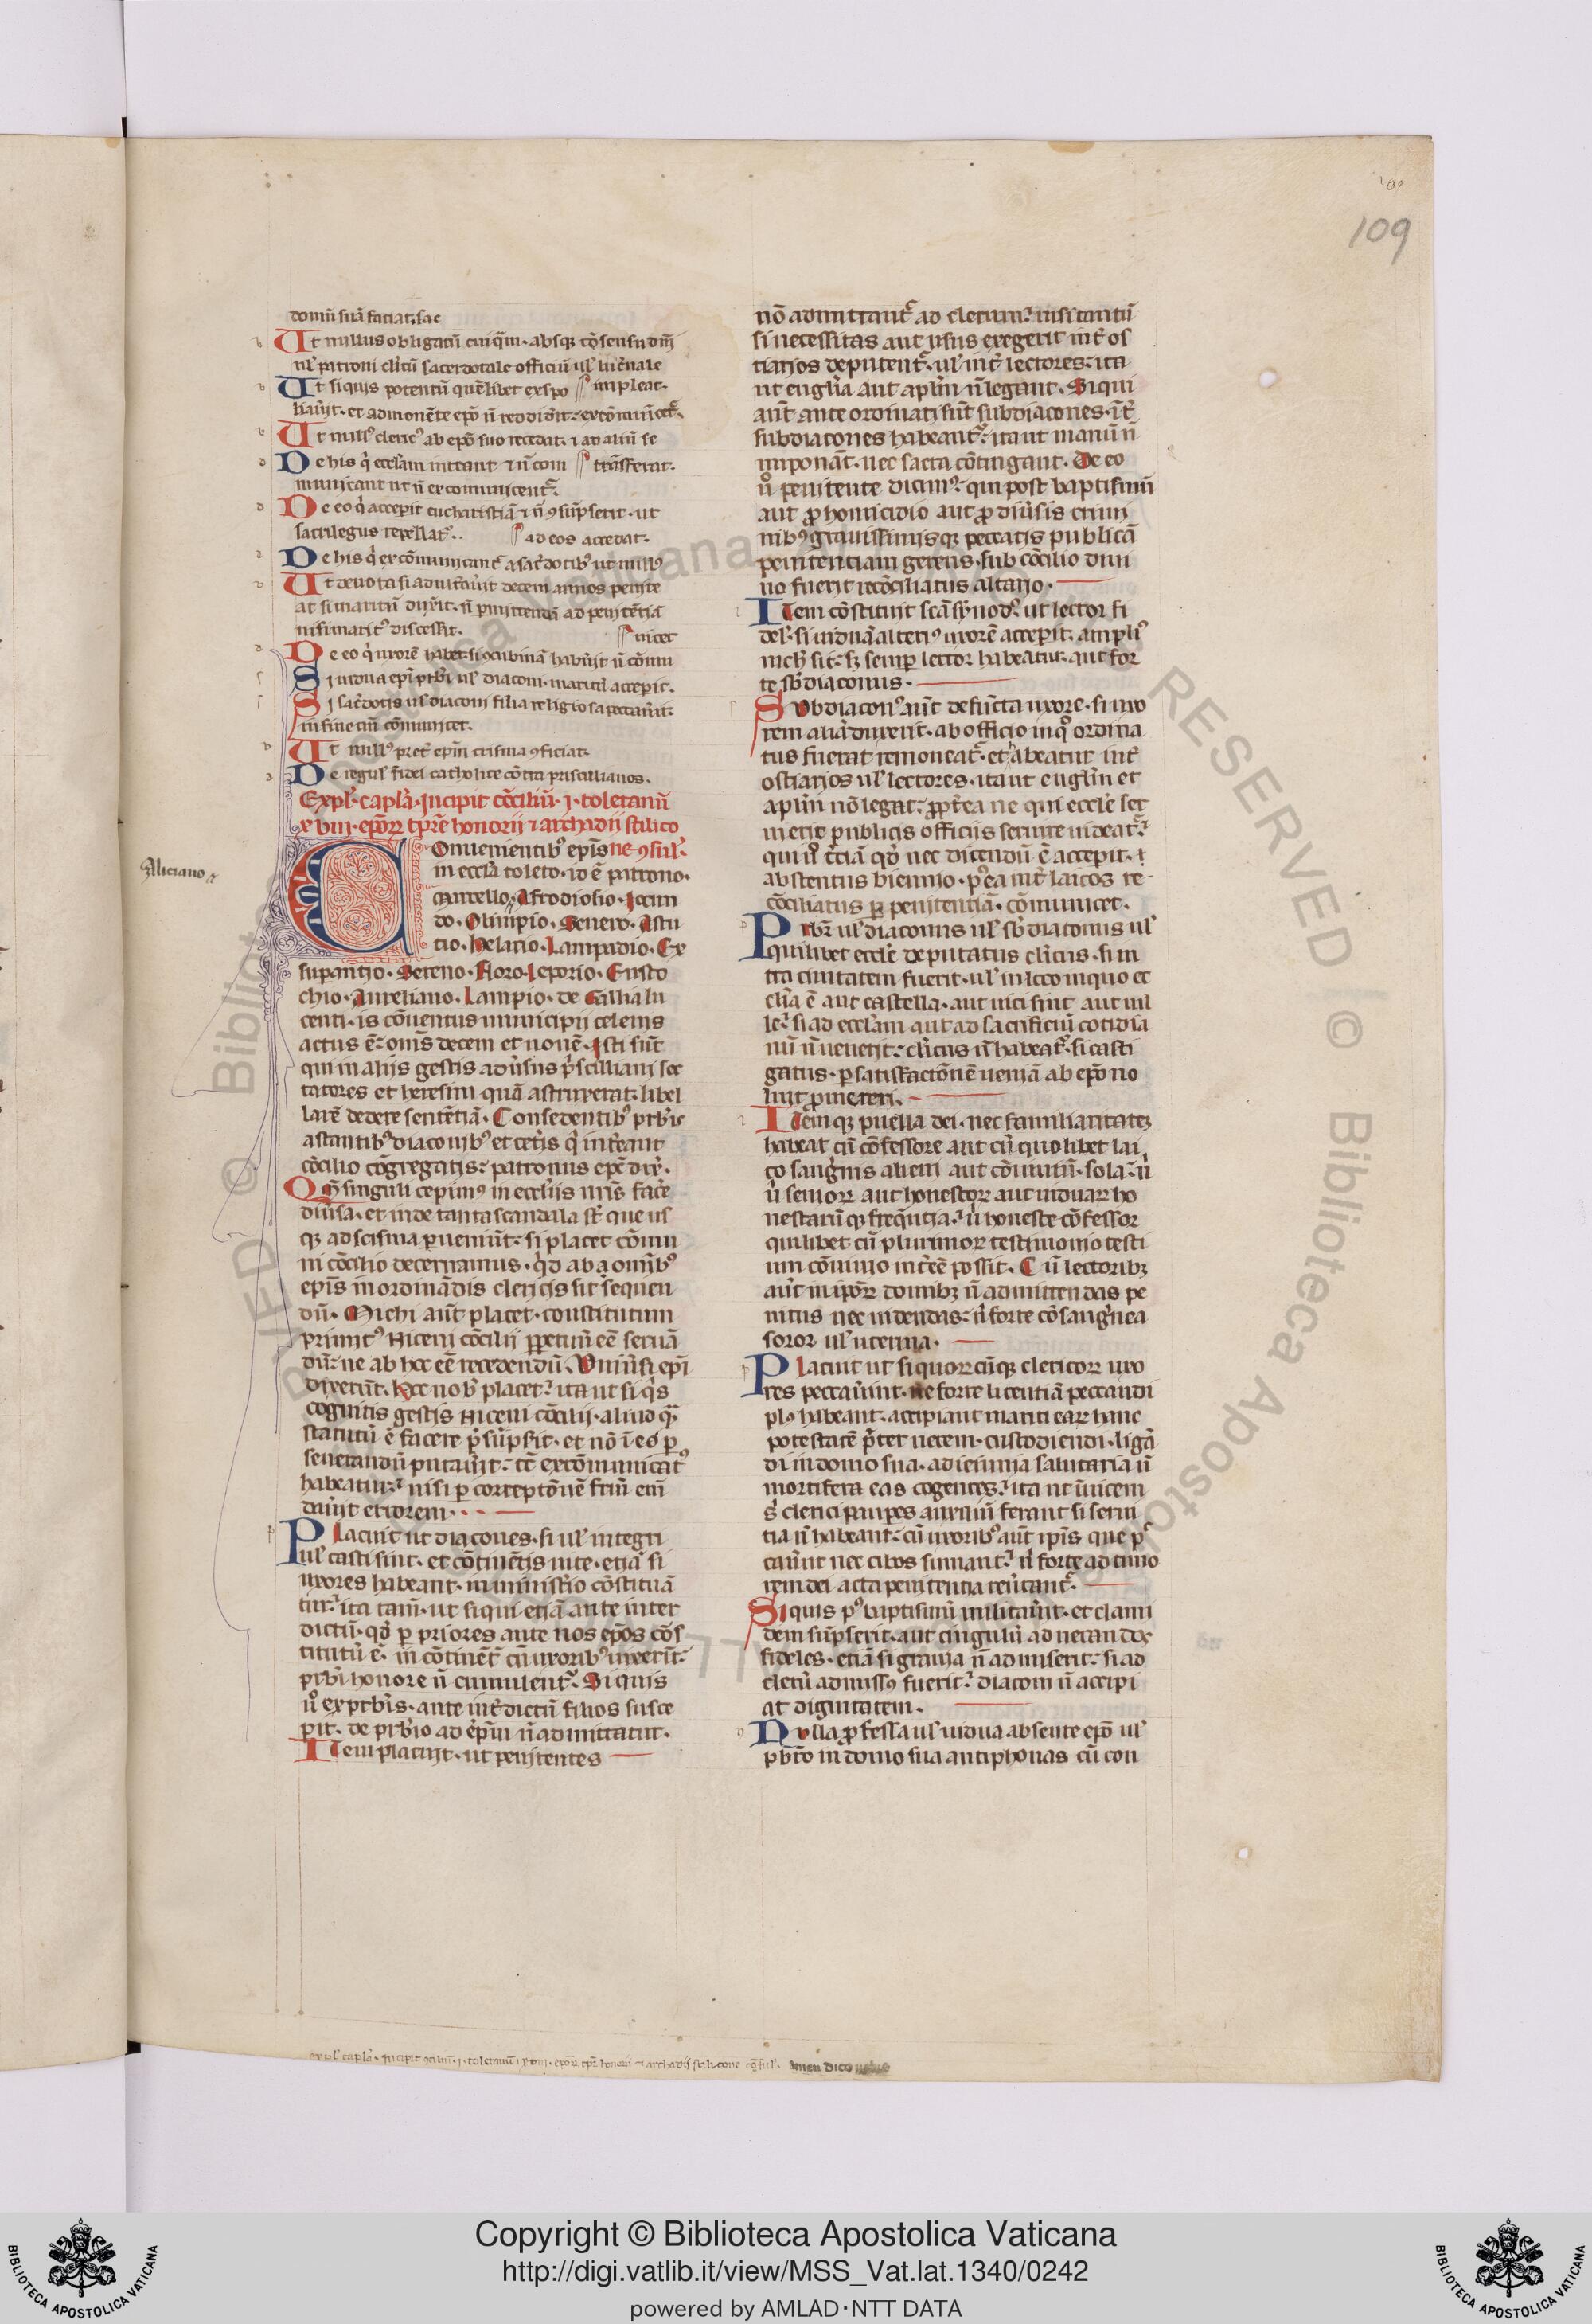 109
domū suā faciat. sac
Ut nullus obligatū cuiq̄m. absqꝫ cōsensu dn̄i
ul̓ patroni cl̓icū sacerdotale officiū ul̓
Ut siquis potentū quēlibet expo impleat.
liau̓it. et admonēte epō n̄ reddid̓it. excōmunicet᷑.
Ut null᷒ cleric᷒ ab epō suo recedat. ⁊ ad aliū se
De his q̓ eccl̓am intrant ⁊ n̄ com trāsferat.
municant ut n̄ excomunicent᷑.
De eo q̓ accepit eucharistiā ⁊ n̄ ꝯsūpserit. ut
sacrilegus repellat᷑. ad eos accedat.
De his q̓ excōmunicant᷑ a sac̓dotib᷒ ut null᷒
Ut deuota si adult̓au̓it decem annos penite
at si maritū dux̓it. n̄ p̱mittenda ad penitētiā
nisi marit᷒ discessit. nicet
De eo q̓ uxorē habet. si ꝯcubinā habu̓it n̄ cōmu
Si uidua ep̄i p̄rbi ul̓ diaconi. maritū accepit.
Si sac̓dotis ul̓ diaconi filia religiosa peccau̓it.
in fine cū cōmunicet.
Ut null᷒ pret̓ ep̄m crisma ꝯficiat.
De regul̓ fidei catholice cōtra priscillianos.
Expl̓. capl̓a. Incipit cōciliū. I. toletanū
xviii. ep̄oꝝ tp̱re honorii ⁊ archadii stilico
Conuenientib᷒ ep̄is ne ꝯsul̓.
in eccl̓a toleto. id ē patrono.
Marcello. Afrodiosio. Iocun
do. Olimpio. Seuero. Astu
rio. Helario. Lampadio. Ex
supantio. Sereno. Floro. Leporio. Eusto
chio. Aureliano. Lampio. de Gallia lu
centi. is cōuentus municipii celenis
actus ē. om̄s decem et nouē. Isti sūt
qui in aliis gestis adu̓sus p̓scilliani sec
tatores et heresim quā astruxerat. libel
larē dedere sentētiā. Consedentib᷒ p̄rbis
astantib᷒ diaconib᷒ et cet̓is q̓ int̓erant
cōcilio cōgregatis. patronus ep̄c dix̓.
Qm̄ singuli cepim᷒ in eccl̓iis n̄ris fac̓e
diu̓sa. et inde tanta scandala sūt que us
qꝫ ad scisma p̱ueniūt. si placet cōmu
ni cōcilio decernamus. q̓d ab a omīb᷒
ep̄is in ordinādis clericis sit sequen
dū. Michi aūt placet. constitutum
primit᷒ Niceni cōcilii p̱petuū eē seruā
dū. ne ab hoc eē recedendū. Uniu̓si ep̄i
dixerūt. Hoc nob̓ placet. ita ut si q̓s
cognitis gestis Niceni cōcilii. aliud q̄m
statutū ē facere p̓sūpsit. et nō ī eo p̱
seuerandū putau̓it. tc̄ excōmunicat᷒
habeatur. nisi p̱ correptōnē fr̄m em̄
dau̓it errorem.
Placuit ut diacones. si ul̓ integri
ul̓ casti sint. et cōtinētis uite. etiā si
uxores habeant. in minist̓io cōstituā
tur. ita tam̄. ut siqui etiā ante inter
dictū. qd̓ p̱ priores ante nos ep̄os cōs
titutū ē. in cōtinēt᷑ cū uxorib᷒ uixerūt.
p̄rbi honore n̄ cumulent᷑. Siquis
u̓o ex p̄rbis. ante int̓dictū filios susce
pit. de p̄rb̓io ad ep̄m n̄ admittatur.
Item placuit. ut penitentes
nō admittant᷑ ad clerum. nisi tantū
si necessitas aut usus exegerit int̓ os
tiarios deputent᷑. ul̓ int̓ lectores. ita
ut eugl̓ia aut apl̓m n̄ legant. Siqui
aūt ante ordinati sūt subdiacones. īt̓
subdiacones habeant᷑. ita ut manū n̄
imponāt. nec sacra cōtingant. De eo
u̓o penitente dicim᷒. qui post baptismū
aut ꝓ homicidio aut ꝓ diu̓sis crimi
nib᷒ grauissimisqꝫ peccatis publicā
penitentiam gerens. sub cōcilio diui
no fuerit recōciliatus altario.
Item cōstituit sc̄a sinod᷒. ut lector fi
del̓. si uiduā alteri᷒ uxorē acceperit. ampli᷒
nich̓ sit. sꝫ semp̱ lector habeatur. aut for
te sb̓diaconus.
Subdiacon᷒ aūt defūcta uxore. si uxo
rem aliā duxerit. ab officio in q̊ ordina
tus fuerat remoueat᷑. et habeatur int̓
ostiarios ul̓ lectores. ita ut eugl̓m et
apl̓m nō legat. ꝓpt̓ea ne qui eccl̓e ser
uierit publicis officiis seruire uideat᷑.
qui u̓o t̓ciā qd̓ nec dicendū ē accepit.
abstentus biennio. p᷒ea int̓ laicos re
cōciliatus p̱ penitentiā. cōmunicet.
Prb̄r ul̓ diaconus ul̓ sb̓diaconus ul̓
quilibet eccl̓e deputatus cl̓icus. si in
tra ciuitatem fuerit. ul̓ in loco in quo ec
cl̓ia ē aut castella. aut uici sint aut uil
le. si ad eccl̓am aut ad sacrificiū cotidia
nū n̄ uenerit. cl̓icus n̄ habeat᷑. si casti
gatus. p̱ satisfactōnē ueniā ab epō no
lu̓it ꝓmereri.
Itemqꝫ puella dei. nec familiaritateꝫ
habeat cū cōfessore aut cū quolibet lai
co sang̓nis alieni aut cōuiuiū. sola. n̓
n̄ senioꝝ aut honestoꝝ aut uiduaꝝ ho
nestarūqꝫ freq̄ntia. u̓ honeste cōfessor
quilibet cū plurimoꝝ testimonio testi
um cōuiuio int̓eē possit. Cū lectoribꝫ
aūt in ip̄oꝝ domibꝫ n̄ admittendas pe
nitus nec uidendas. n̓ forte cōsang̓nea
soror ul̓ uterina.
Placuit ut si quorcūqꝫ clericoꝝ uxo
res peccau̓int. ne forte licentiā peccandi
pl᷒ habeant. accipiant mariti eaꝝ hanc
potestatē p̄ter necem. custodiendi. ligā
di in domo sua. ad ieiunia salutaria n̄
mortifera eas cogentes. ita ut inuicem
s̓ clerici pauperes auxiliū ferant si serui
tia n̄ habeant. cū uxorib᷒ aūt ip̄is que pec
cau̓int nec cibos sumant. n̓ forte ad timo
rem dei acta penitentia reu̓tant᷑.
Siquis p᷒ baptismū militau̓it. et clami
dem sūpserit. aut cingulū ad necandos
fideles. etiā si grauia n̄ admiserit. si ad
clerū admiss᷒ fuerit. diaconi n̄ accipi
at dignitatem.
Nulla ꝓfessa ul̓ uidua absente epō ul̓
p̄rbro in domo sua antiphonas cū con
Copyright © Biblioteca Apostolica Vaticana
http://digi.vatlib.it/view/MSS_Vat.lat.1340/0242
powered by AMLAD·NTT DATA
BIBLIOTECA APOSTOLICA VATICANA
BIBLIOTECA APOSTOLICA VATICANA